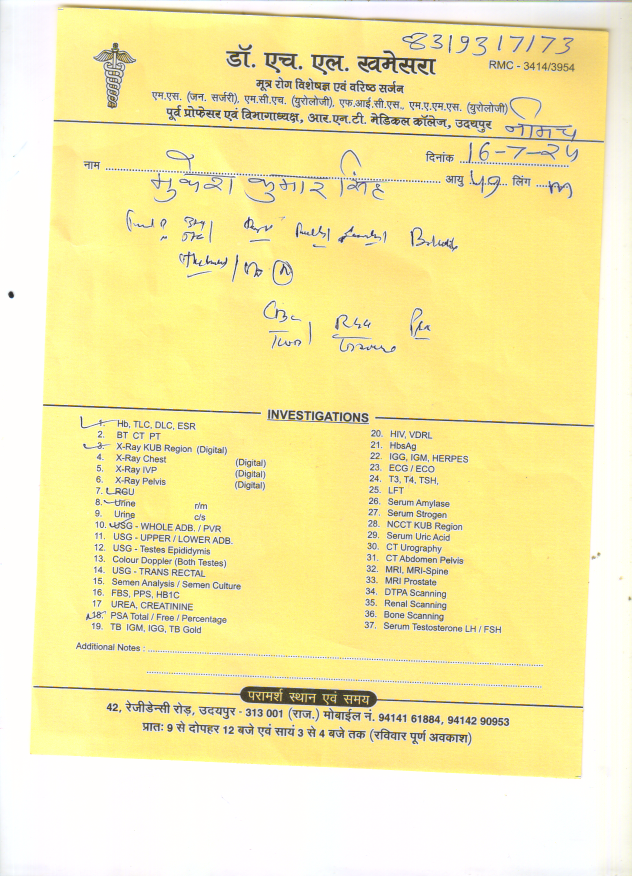 8319317173
डॉ. एच. एल. खमेसरा
RMC - 3414/3954
मूत्र रोग विशेषज्ञ एवं वरिष्ठ सर्जन
एम.एस. (जन. सर्जरी), एम.सी.एच. (युरोलोजी), एफ.आई.सी.एस., एम.ए.एम.एस. (युरोलोजी)
पूर्व प्रोफेसर एवं विभागाध्यक्ष, आर.एन.टी. मेडिकल कॉलेज, उदयपुर
नीमच
दिनांक 16-7-24
नाम मुकेश कुमार सिंह आयु 49 लिंग m
CBC
PSA
INVESTIGATIONS
1. Hb, TLC, DLC, ESR
2. BT CT PT
3. X-Ray KUB Region (Digital)
4. X-Ray Chest (Digital)
5. X-Ray IVP (Digital)
6. X-Ray Pelvis (Digital)
7. RGU
8. Urine r/m
9. Urine c/s
10. USG - WHOLE ADB. / PVR
11. USG - UPPER / LOWER ADB.
12. USG - Testes Epididymis
13. Colour Doppler (Both Testes)
14. USG - TRANS RECTAL
15. Semen Analysis / Semen Culture
16. FBS, PPS, HB1C
17 UREA, CREATININE
18. PSA Total / Free / Percentage
19. TB IGM, IGG, TB Gold
20. HIV, VDRL
21. HbsAg
22. IGG, IGM, HERPES
23. ECG / ECO
24. T3, T4, TSH,
25. LFT
26. Serum Amylase
27. Serum Strogen
28. NCCT KUB Region
29. Serum Uric Acid
30. CT Urography
31. CT Abdomen Pelvis
32. MRI, MRI-Spine
33. MRI Prostate
34. DTPA Scanning
35. Renal Scanning
36. Bone Scanning
37. Serum Testosterone LH / FSH
Additional Notes :
परामर्श स्थान एवं समय
42, रेजीडेन्सी रोड़, उदयपुर - 313 001 (राज.) मोबाईल नं. 94141 61884, 94142 90953
प्रातः 9 से दोपहर 12 बजे एवं सायं 3 से 4 बजे तक (रविवार पूर्ण अवकाश)